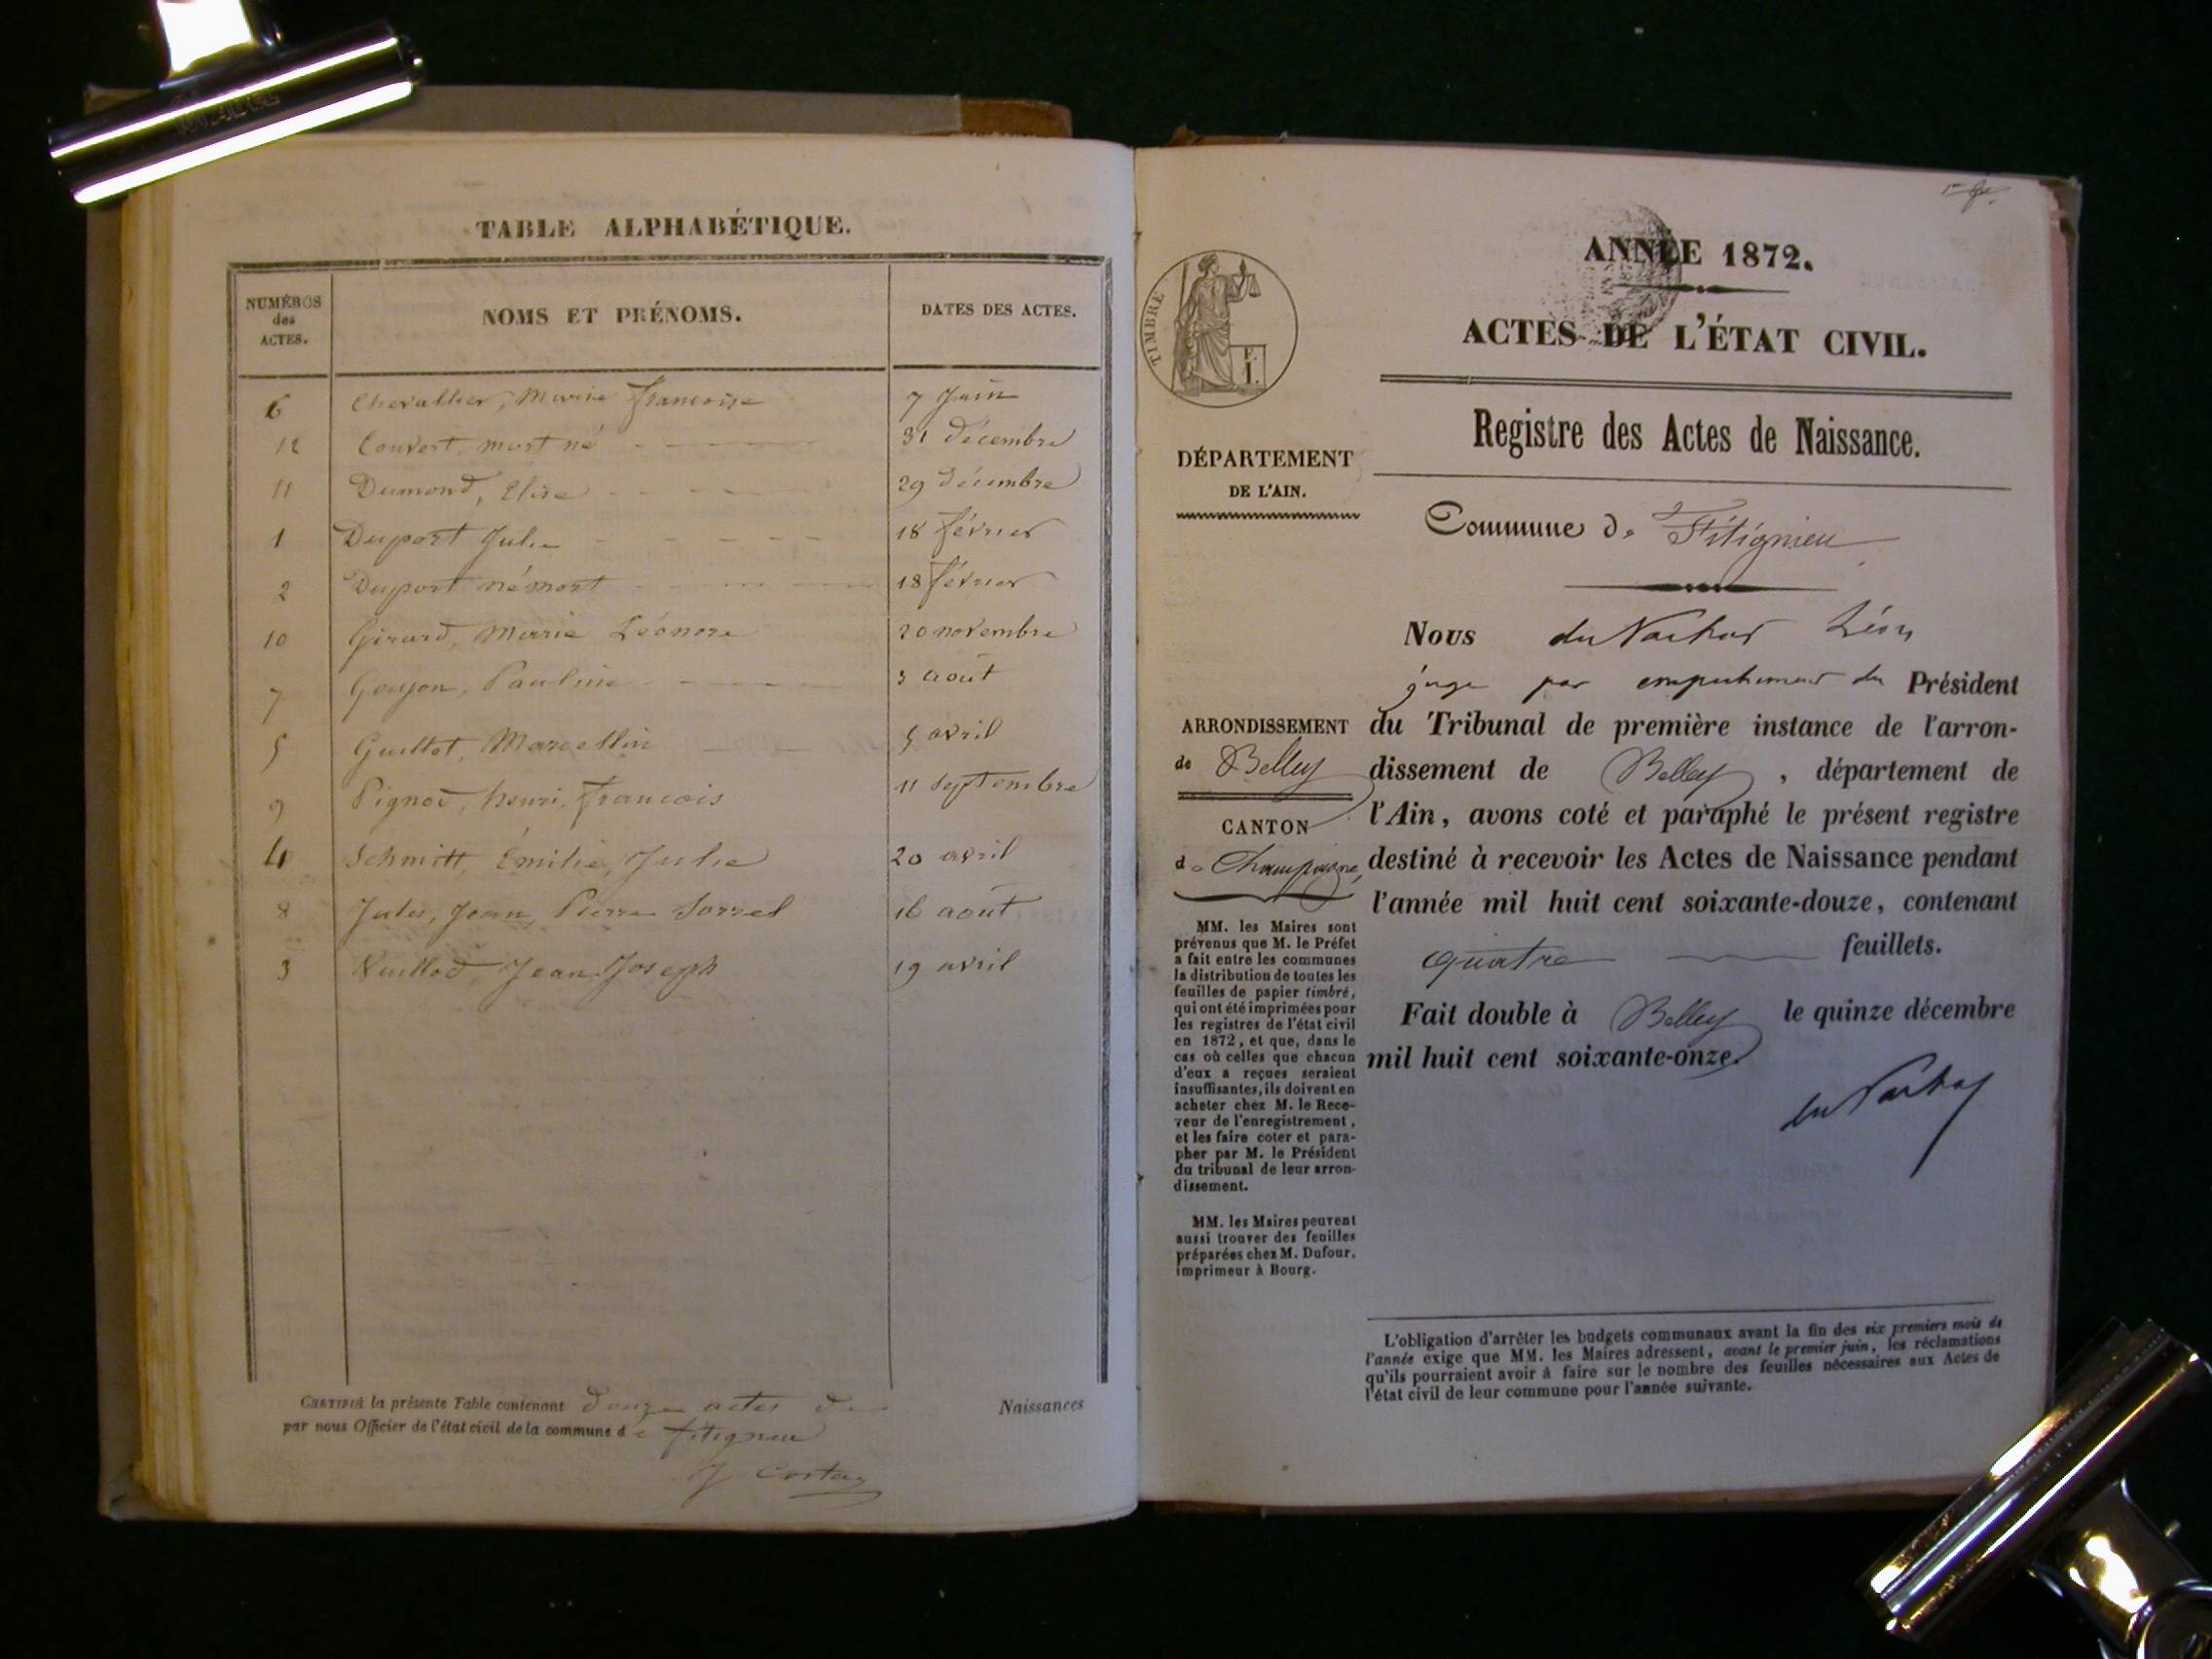 TABLE ALPHABÉTIQUE.
NUMÉROS des ACTES.
NOMS ET PRÉNOMS.
DATES DES ACTES.
6 Chevallier, Marie françoise 7 Juin
12 Couvert mort né 31 décembre
11 Dumond, Elise 29 décembre
1 Duport Julie 18 février
2 Duport né mort 18 février
10 Girard, Marie Léonore 20 novembre
7 Goujon, Pauline 3 août
5 Guillot, Marcellin 5 avril
9 Pignod, henri, françois 11 Septembre
4 Schmitt, Émilie, Julie 20 avril
8 Jules, Jean, Pierre Sorrel 16 août
3 Vuillod, Jean Joseph 19 avril
CERTIFIÉ la présente Table contenant douze actes de Naissances
par nous Officier de l'état civil de la commune de fitignieu
TIMBRE
ANNÉE 1872.
ACTES DE L'ÉTAT CIVIL.
Registre des Actes de Naissance.
DÉPARTEMENT
DE L'AIN.
Commune de Fitignieu
Nous Léon
juge par empêchement du Président
du Tribunal de première instance de l'arron-
dissement de Belley, département de
l'Ain, avons coté et paraphé le présent registre
destiné à recevoir les Actes de Naissance pendant
l'année mil huit cent soixante-douze, contenant
quatre feuillets.
Fait double à Belley le quinze décembre
mil huit cent soixante-onze.
ARRONDISSEMENT
de Belley
CANTON
de Champagne,
MM. les Maires sont
prévenus que M. le Préfet
a fait entre les communes
la distribution de toutes les
feuilles de papier timbré,
qui ont été imprimées pour
les registres de l'état civil
en 1872, et que, dans le
cas où celles que chacun
d'eux a reçues seraient
insuffisantes, ils doivent en
acheter chez M. le Rece-
veur de l'enregistrement,
et les faire coter et para-
pher par M. le Président
du tribunal de leur arron-
dissement.
MM. les Maires peuvent
aussi trouver des feuilles
préparées chez M. Dufour,
imprimeur à Bourg.
L'obligation d'arrêter les budgets communaux avant la fin des six premiers mois de
l'année exige que MM. les Maires adressent, avant le premier juin, les réclamations
qu'ils pourraient avoir à faire sur le nombre des feuilles nécessaires aux Actes de
l'état civil de leur commune pour l'année suivante.